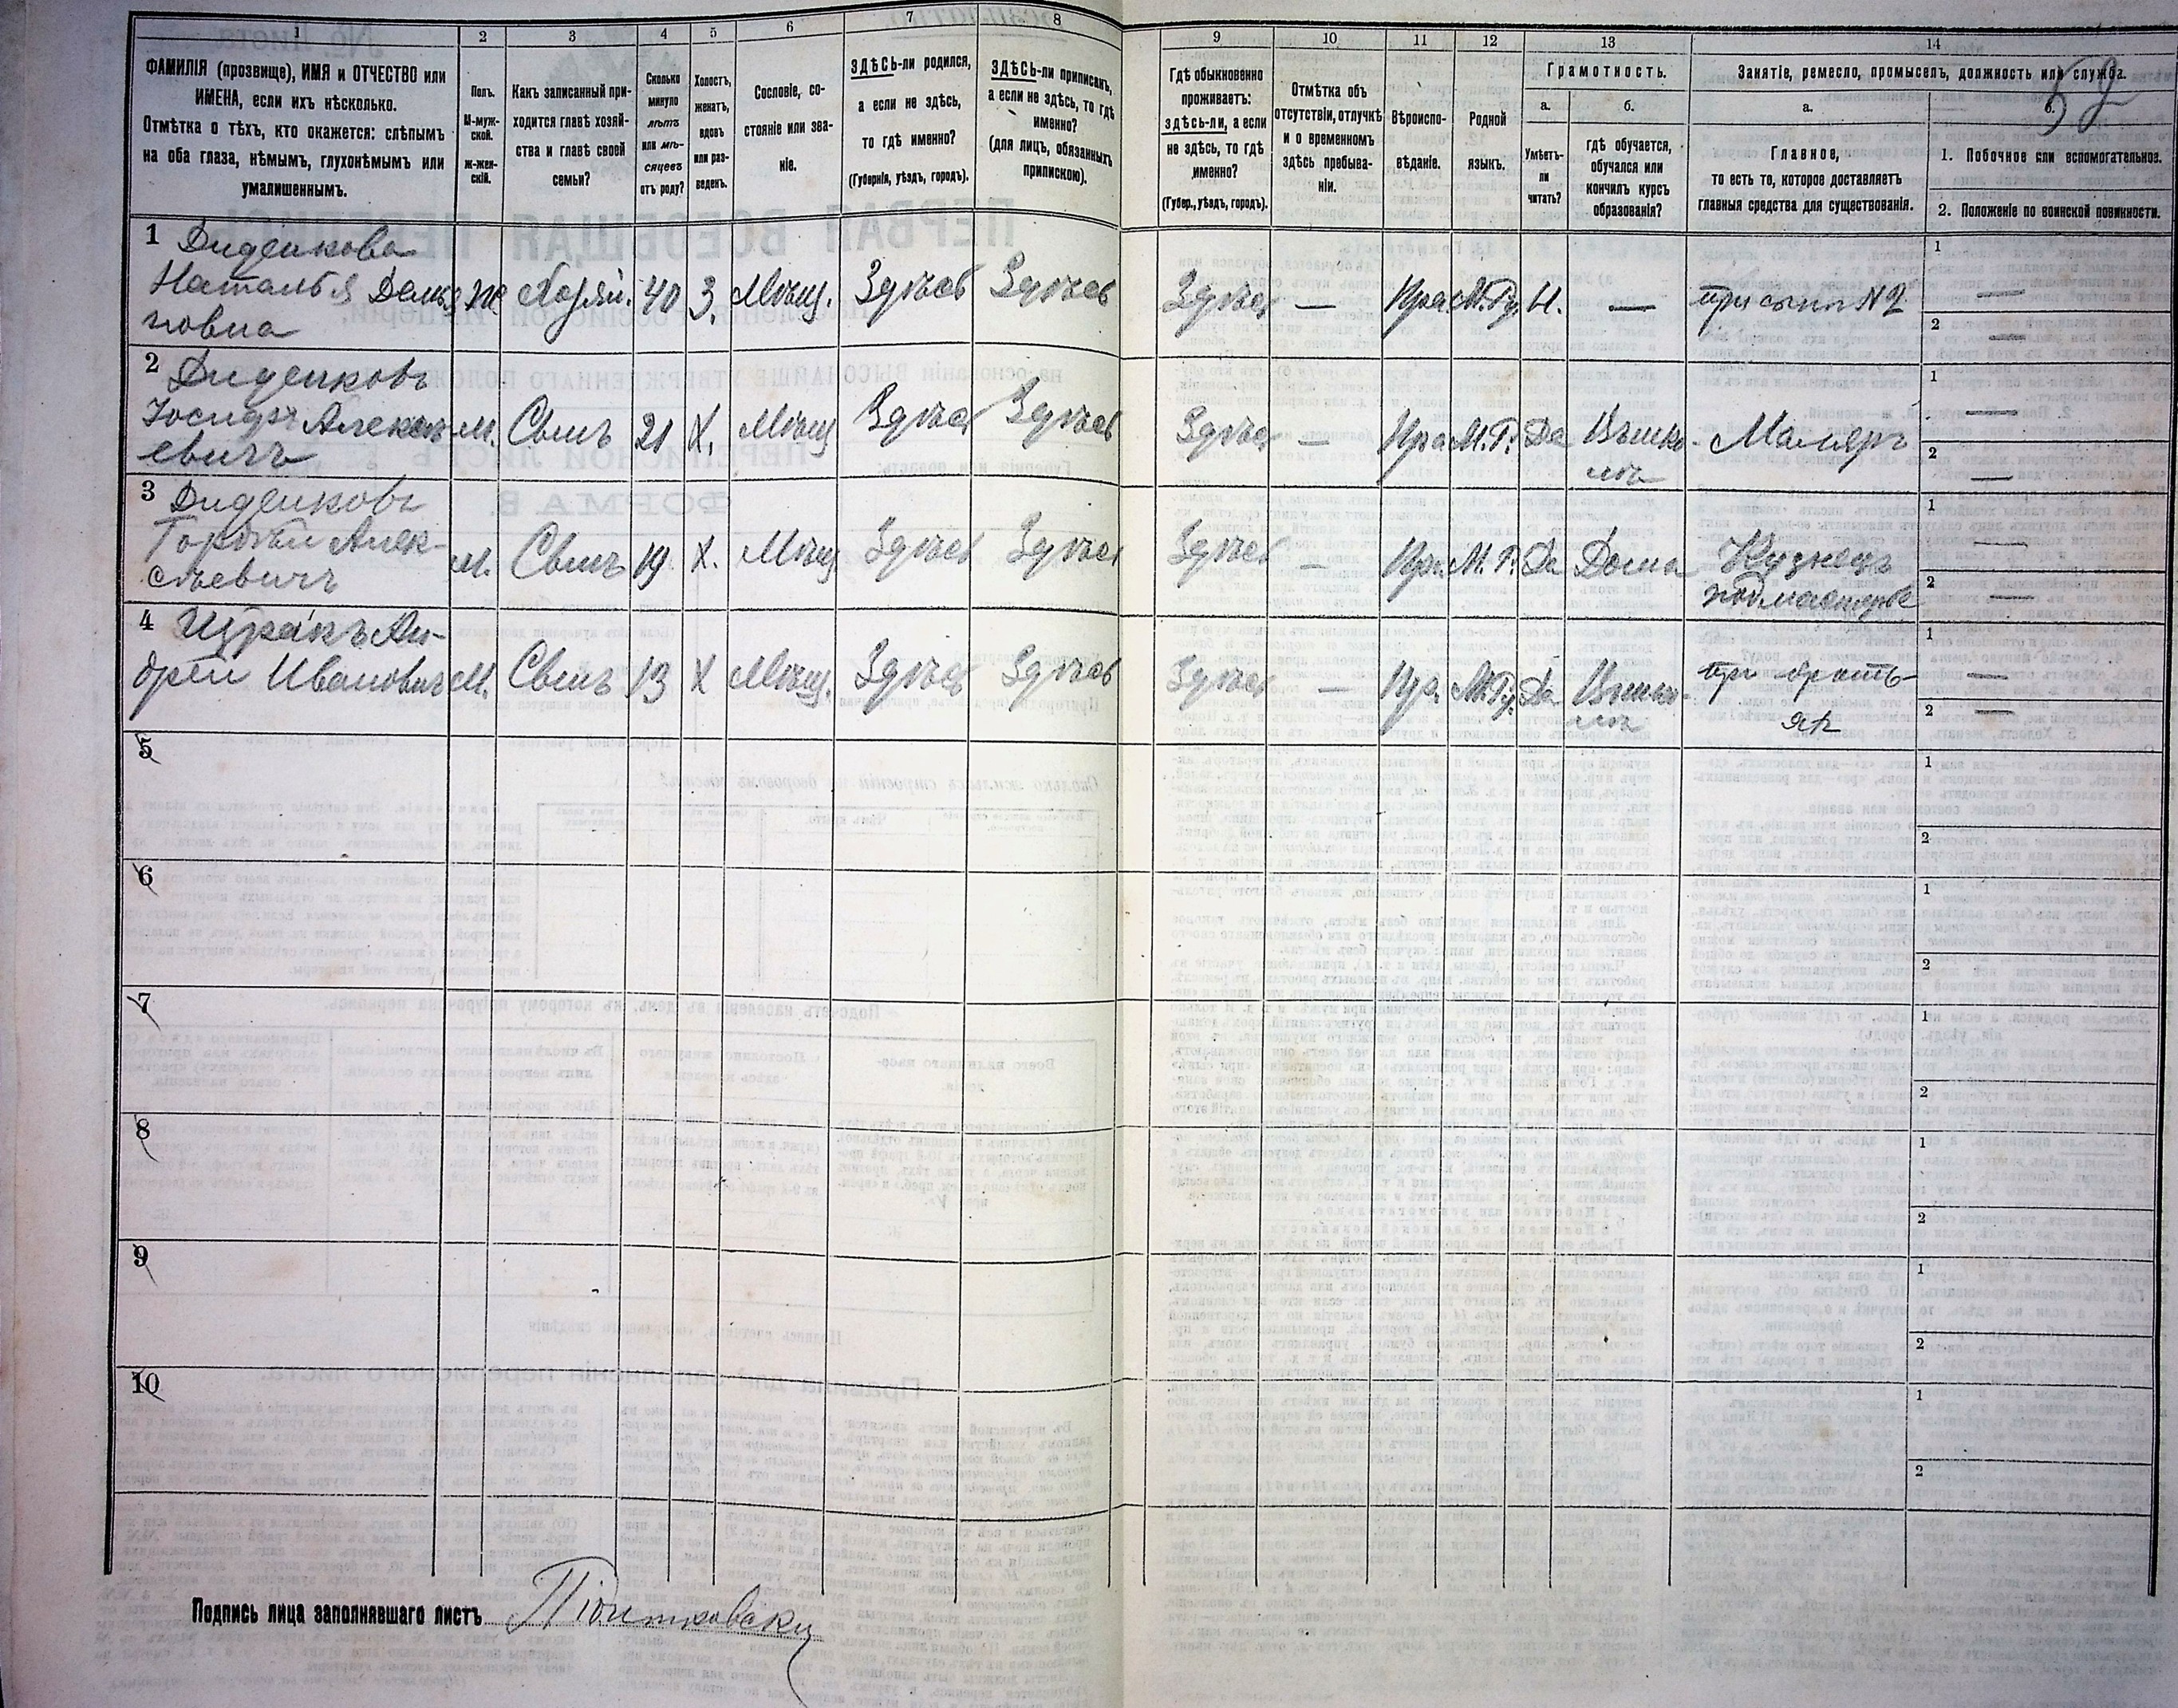 1
2
3
4
5
6
7
8
9
10
11
12
13
14
ФАМИЛІЯ (прозвище), ИМЯ и ОТЧЕСТВО или
ИМЕНА, если ихъ нѣсколько.
Отмѣтка о тѣхъ, кто окажется: слѣпымъ
на оба глаза, нѣмымъ, глухонѣмымъ или
умалишеннымъ.
Полъ.
М-муж-
ской.
ж-жен-
скій.
Какъ записанный при-
ходится главѣ хозяй-
ства и главѣ своей
семьи?
Сколько
минуло
лѣтъ
или мѣ-
сяцевъ
отъ роду?
Холостъ,
женатъ,
вдовъ
или раз-
веденъ.
Сословіе, со-
стояніе или зва-
ніе.
ЗДѢСЬ-ли родился,
а если не здѣсь,
то гдѣ именно?
(Губернія, уѣздъ, городъ).
ЗДѢСЬ-ли приписанъ,
а если не здѣсь, то гдѣ
именно?
(для лицъ, обязанныхъ
припискою).
Гдѣ обыкновенно
проживаетъ:
здѣсь-ли, а если
не здѣсь, то гдѣ
именно?
(Губер., уѣздъ, городъ).
Отмѣтка объ
отсутствіи, отлучкѣ
и о временномъ
здѣсь пребыва-
ніи.
Вѣроиспо-
вѣданіе.
Родной
языкъ.
Грамотность.
а.
б.
Умѣетъ-
ли
читать?
гдѣ обучается,
обучался или
кончилъ курсъ
образованія?
Занятіе, ремесло, промыселъ, должность или служба.
а.
б.
Главное,
то есть то, которое доставляетъ
главныя средства для существованія.
1. Побочное или вспомогательное.
2. Положеніе по воинской повинности.
1 Диденкова
Наталья Демья
новна
ж
Хозяй.
40
З.
Мѣщ.
Здѣсь
Здѣсь
Здѣсь
—
Пра
М.Ру.
Н.
—
при сынѣ N2
1 —
2 —
2 Диденковъ
Іосифъ Алексѣ
евичъ
М.
Сынъ
21
Х.
Мѣщ
Здѣсь
Здѣсь
Здѣсь
—
Пра
М.Р.
Да
Въ шко-
лѣ
Маляръ
1 —
2 —
3 Диденковъ
Гордѣй Алек-
сѣевичъ
М.
Сынъ
19
Х.
Мѣщ
Здѣсь
Здѣсь
Здѣсь
—
Пр.
М.Р.
Да
Дома
Кузнецъ
подмастерье
1 —
2 —
4
Ан-
дрей Ивановичъ
М.
Сынъ
13
Х
Мѣщ.
Здѣсь
Здѣсь
Здѣсь
—
Пр.
М.Ру.
Да
Въ шко-
лѣ
при брать-
яхъ
1 —
2 —
5
1
2
6
1
2
7
1
2
8
1
2
9
1
2
10
1
2
Подпись лица заполнявшаго листъ